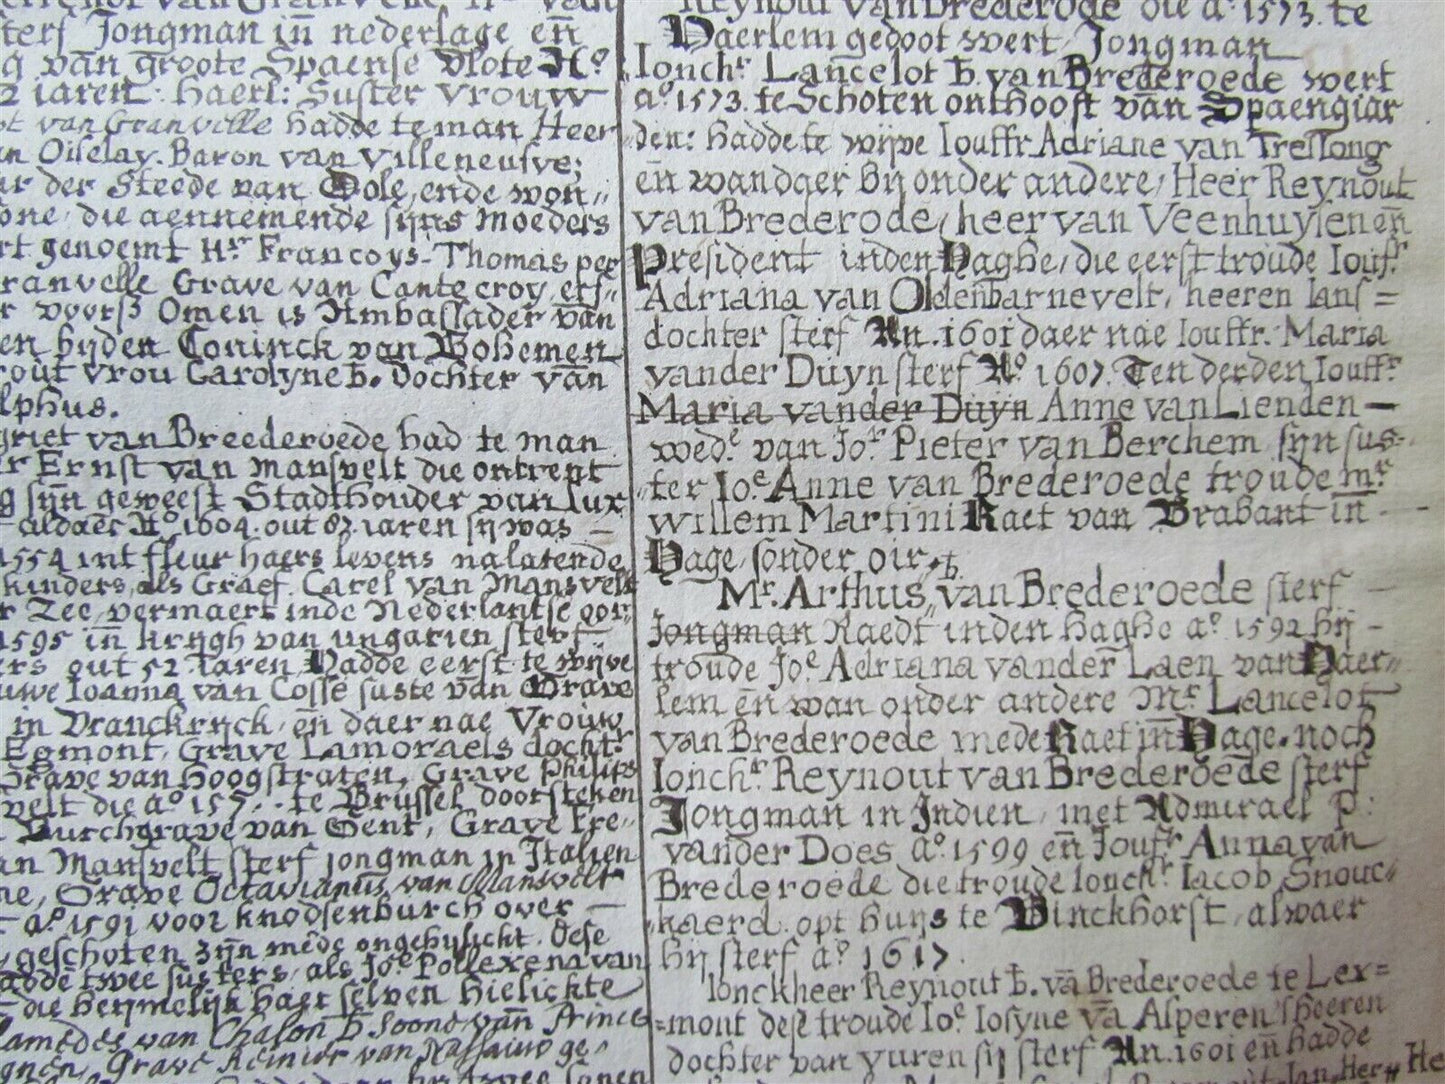 sterf Jongman in nederlage en
g van groote Spaense Vlote Ao
2 iaren. haerl: Suster vrouw
van Granvelle hadde te man Heer
Oiselay. Baron van Villeneufve;
der Steede van Dole, ende won„
one, die aennemende sijns Moeders
rt genoemt Hr. Francoys-Thomas per
ranvelle Grave van Cantecroy, erf„
r voors Omen is Ambassader van
en bijden Coninck van Bohemen
rout vrou Carolyne b. Dochter van
lphus.
griet van Breederoede had te man
r Ernst van Mansvelt die ontrent
g sijn geweest Stadthouder van Lux
aldaer Ao 1604. out 87. iaren sij was
1554 int fleur haers levens nalatende
kinders, als Graef Carel van Mansvelt
r Zee, vermaert inde Nederlantse oor„
1595 in krijgh van ungarien sterf
ers out 52 Iaren, Hadde eerst te wijve
uwe Ioanna van Cosse suste van Grave
in Vranckrijck, en daer nae Vrouw
Egmont, Grave Lamoraels docht.r
Grave van Hoogstraten, Grave Philips
velt die ao 157.. te Brussel doorsteken
Burchgrave van Gent, Grave Fre„
an Mansvelt sterf jongman in Italien
ne, Grave Octavianus van Mansvelt
ao. 1591 voor Knodsenburch over
geschoten zijn mede ongehylickt. Dese
adde twee susters, als Joe Pollexena van
die heijmelijk haer selven hielickte
lamedes van Chalon b. Soone van Prince
Grave Reinier van Nassauw ge„
Reynout van Brederode die ao. 1573. te
Haerlem gedoot wert Jongman
Ionchr. Lancelot b. van Brederoede wert
ao. 1573. te Schoten onthooft van Spaengiar
den: hadde te wijve Iouffr Adriane van Treslong
en wandaer bij onder andere, Heer Reynout
van Brederode, heer van Veenhuysen en
President inden Haghe, die eerst troude Iouf.r
Adriana van Oldenbarnevelt, heeren Ians=
dochter sterf An. 1601 daer nae Iouffr. Maria
vander Duyn sterf Ao. 1607. Ten derden Iouffr.
Maria vander Duyn Anne van Lienden —
wede. van Jor. Pieter van Berchem sijn sus=
ter Ioe. Anne van Brederoede troude mr.
Willem Martini Raet van Brabant in
Hage, sonder oir,
Mr. Arthus b. van Brederoede sterf
Jongman Raedt inden Haghe ao. 1592 hij
troude Joe Adriana vander Laen van Haer„
lem en wan onder andere Mr. Lancelot
van Brederoede mede Raet in Hage. noch
Ionchr. Reynout van Brederoede sterf
Jongman in Indien, met Admirael P.
vander Does ao. 1599 en Joufr. Anna van
Brederoede die troude Ionchr. Iacob Snouc„
kaerd. opt huys te Binckhorst, alwaer
hij sterf ao. 1617.
Ionckheer Reynout b. van Brederoede te Lex=
mont dese troude Ioe. Iosyne van Alperen 's heeren
dochter van vuren sij sterf An. 1601 en hadde